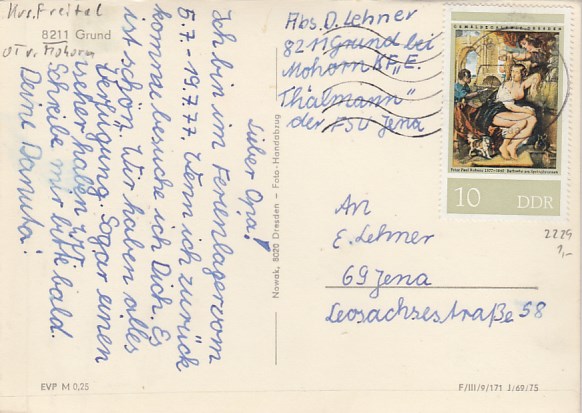 Krs. Freital
8211 Grund
OT v. Mohorn
Lieber Opa!
Ich bin im Ferienlager vom
5.7.-19.7.77. Wenn ich zurück
komme besuche ich Dich. Es
ist schön. Wir haben alles
Verfügung. Sogar einen
Fernseher haben wir.
Schreibe mir bitte bald.
Deine Danuta!
Abs. D. Lehner
8211 Grund bei
Mohorn KF „E.
Thälmann"
der FSU Jena
GEMÄLDEGALERIE DRESDEN
Peter Paul Rubens 1577-1640 Bathseba am Springbrunnen
10 DDR
2229
1,-
An
E. Lehner
69 Jena
Leosachsestraße 58
Nowak, 8020 Dresden – Foto-Handabzug
EVP M 0,25
F/III/9/171 J/69/75